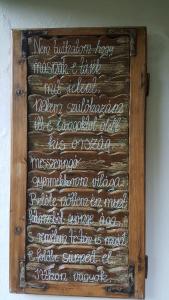 Nem tudhatom, hogy
másnak e tájék
mit jelent,
nekem szülőhazám
itt e lángoktól ölelt
kis ország,
messzeringó
gyermekkorom világa.
Belőle nőttem én, mint
fatörzsből gyönge ága,
s remélem, testem is majd
e földbe süpped el.
Itthon vagyok.